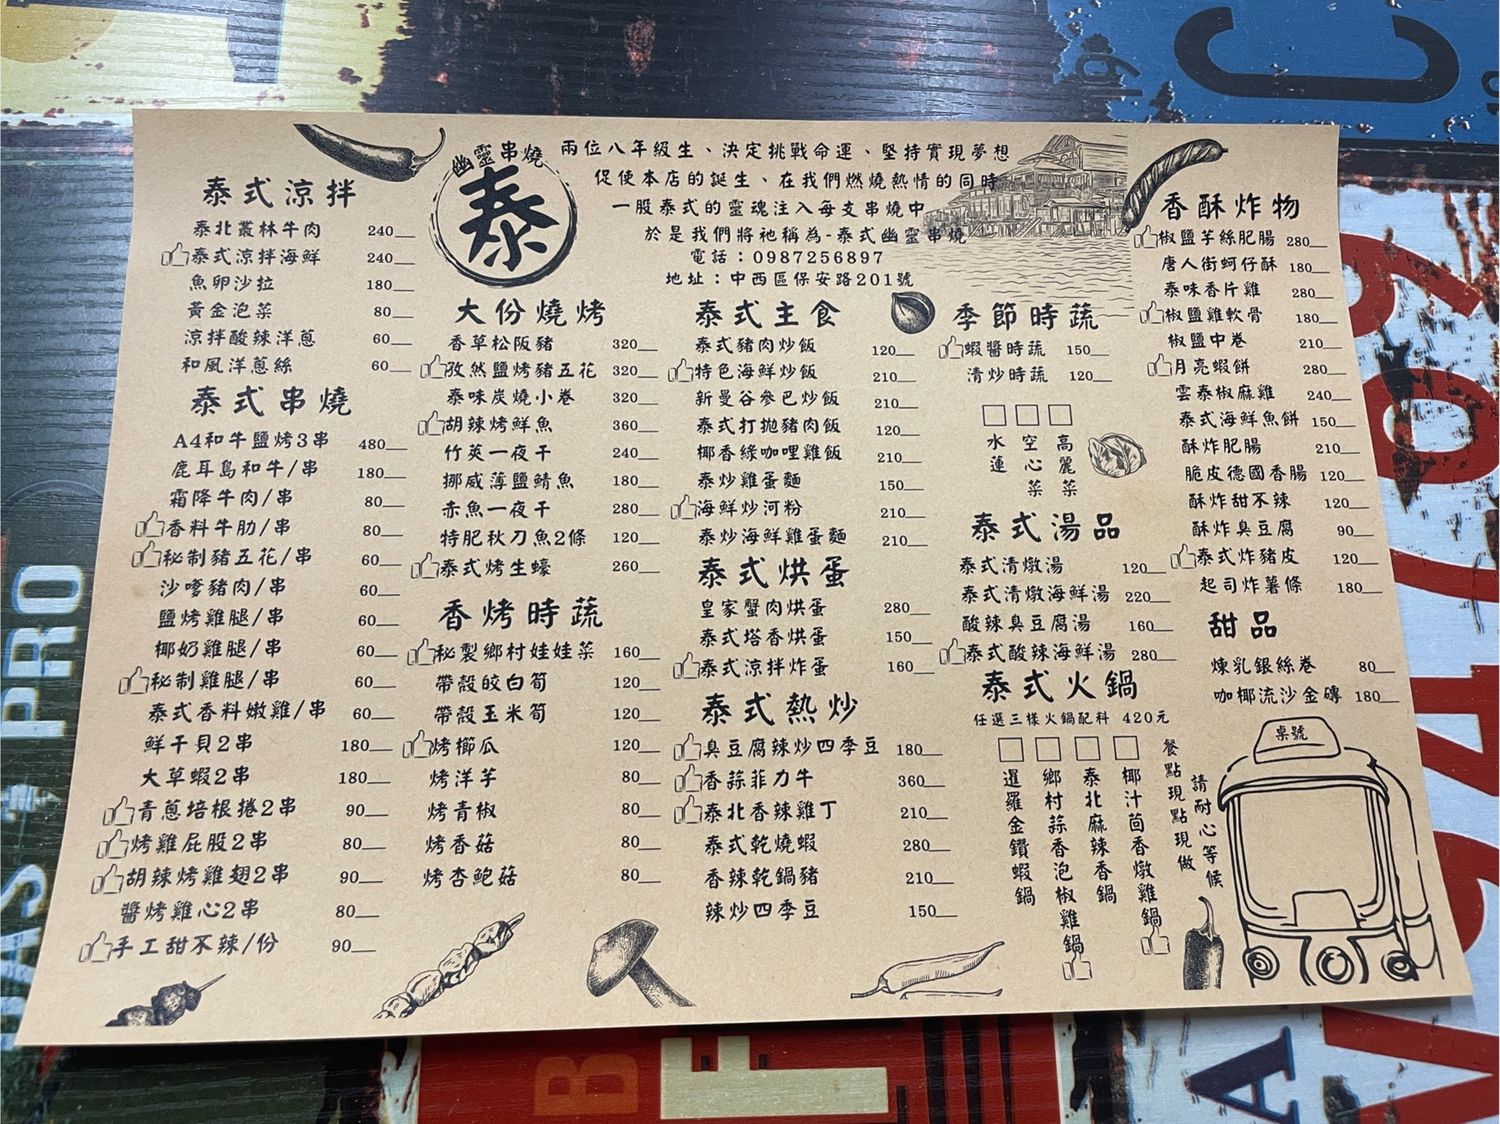 幽靈串燒
泰
兩位八年級生、決定挑戰命運、堅持實現夢想
促使本店的誕生、在我們燃燒熱情的同時
一股泰式的靈魂注入每支串燒中
於是我們將祂稱為-泰式幽靈串燒
電話：0987256897
地址：中西區保安路201號
泰式涼拌
泰北叢林牛肉 240__
泰式涼拌海鮮 240__
魚卵沙拉 180__
黃金泡菜 80__
涼拌酸辣洋蔥 60__
和風洋蔥絲 60__
泰式串燒
A4和牛鹽烤3串 480__
鹿耳島和牛/串 180__
霜降牛肉/串 80__
香料牛肋/串 80__
秘制豬五花/串 60__
沙嗲豬肉/串 60__
鹽烤雞腿/串 60__
椰奶雞腿/串 60__
秘制雞腿/串 60__
泰式香料嫩雞/串 60__
鮮干貝2串 180__
大草蝦2串 180__
青蔥培根捲2串 90__
烤雞屁股2串 80__
胡辣烤雞翅2串 90__
醬烤雞心2串 80__
手工甜不辣/份 90__
大份燒烤
香草松阪豬 320__
孜然鹽烤豬五花 320__
泰味炭燒小卷 320__
胡辣烤鮮魚 360__
竹莢一夜干 240__
挪威薄鹽鯖魚 180__
赤魚一夜干 280__
特肥秋刀魚2條 120__
泰式烤生蠔 260__
香烤時蔬
秘製鄉村娃娃菜 160__
帶殼皎白筍 120__
帶殼玉米筍 120__
烤櫛瓜 120__
烤洋芋 80__
烤青椒 80__
烤香菇 80__
烤杏鮑菇 80__
泰式主食
泰式豬肉炒飯 120__
特色海鮮炒飯 210__
新曼谷參巴炒飯 210__
泰式打拋豬肉飯 120__
椰香綠咖哩雞飯 210__
泰炒雞蛋麵 150__
海鮮炒河粉 210__
泰炒海鮮雞蛋麵 210__
泰式烘蛋
皇家蟹肉烘蛋 280__
泰式塔香烘蛋 150__
泰式涼拌炸蛋 160__
泰式熱炒
臭豆腐辣炒四季豆 180__
香蒜菲力牛 360__
泰北香辣雞丁 210__
泰式乾燒蝦 280__
香辣乾鍋豬 210__
辣炒四季豆 150__
季節時蔬
蝦醬時蔬 150__
清炒時蔬 120__
□□□
水蓮
空心菜
高麗菜
泰式湯品
泰式清燉湯 120__
泰式清燉海鮮湯 220__
酸辣臭豆腐湯 160__
泰式酸辣海鮮湯 280__
泰式火鍋
任選三樣火鍋配料 420元
□□□□
暹羅金鑽蝦鍋
鄉村蒜香泡椒雞鍋
泰北麻辣香鍋
椰汁茴香燉雞鍋
餐點現點現做
請耐心等候
香酥炸物
椒鹽芋絲肥腸 280__
唐人街蚵仔酥 180__
泰味香片雞 280__
椒鹽雞軟骨 180__
椒鹽中卷 210__
月亮蝦餅 280__
雲泰椒麻雞 240__
泰式海鮮魚餅 150__
酥炸肥腸 210__
脆皮德國香腸 120__
酥炸甜不辣 120__
酥炸臭豆腐 90__
泰式炸豬皮 120__
起司炸薯條 180__
甜品
煉乳銀絲卷 80__
咖椰流沙金磚 180__
桌號
PRO